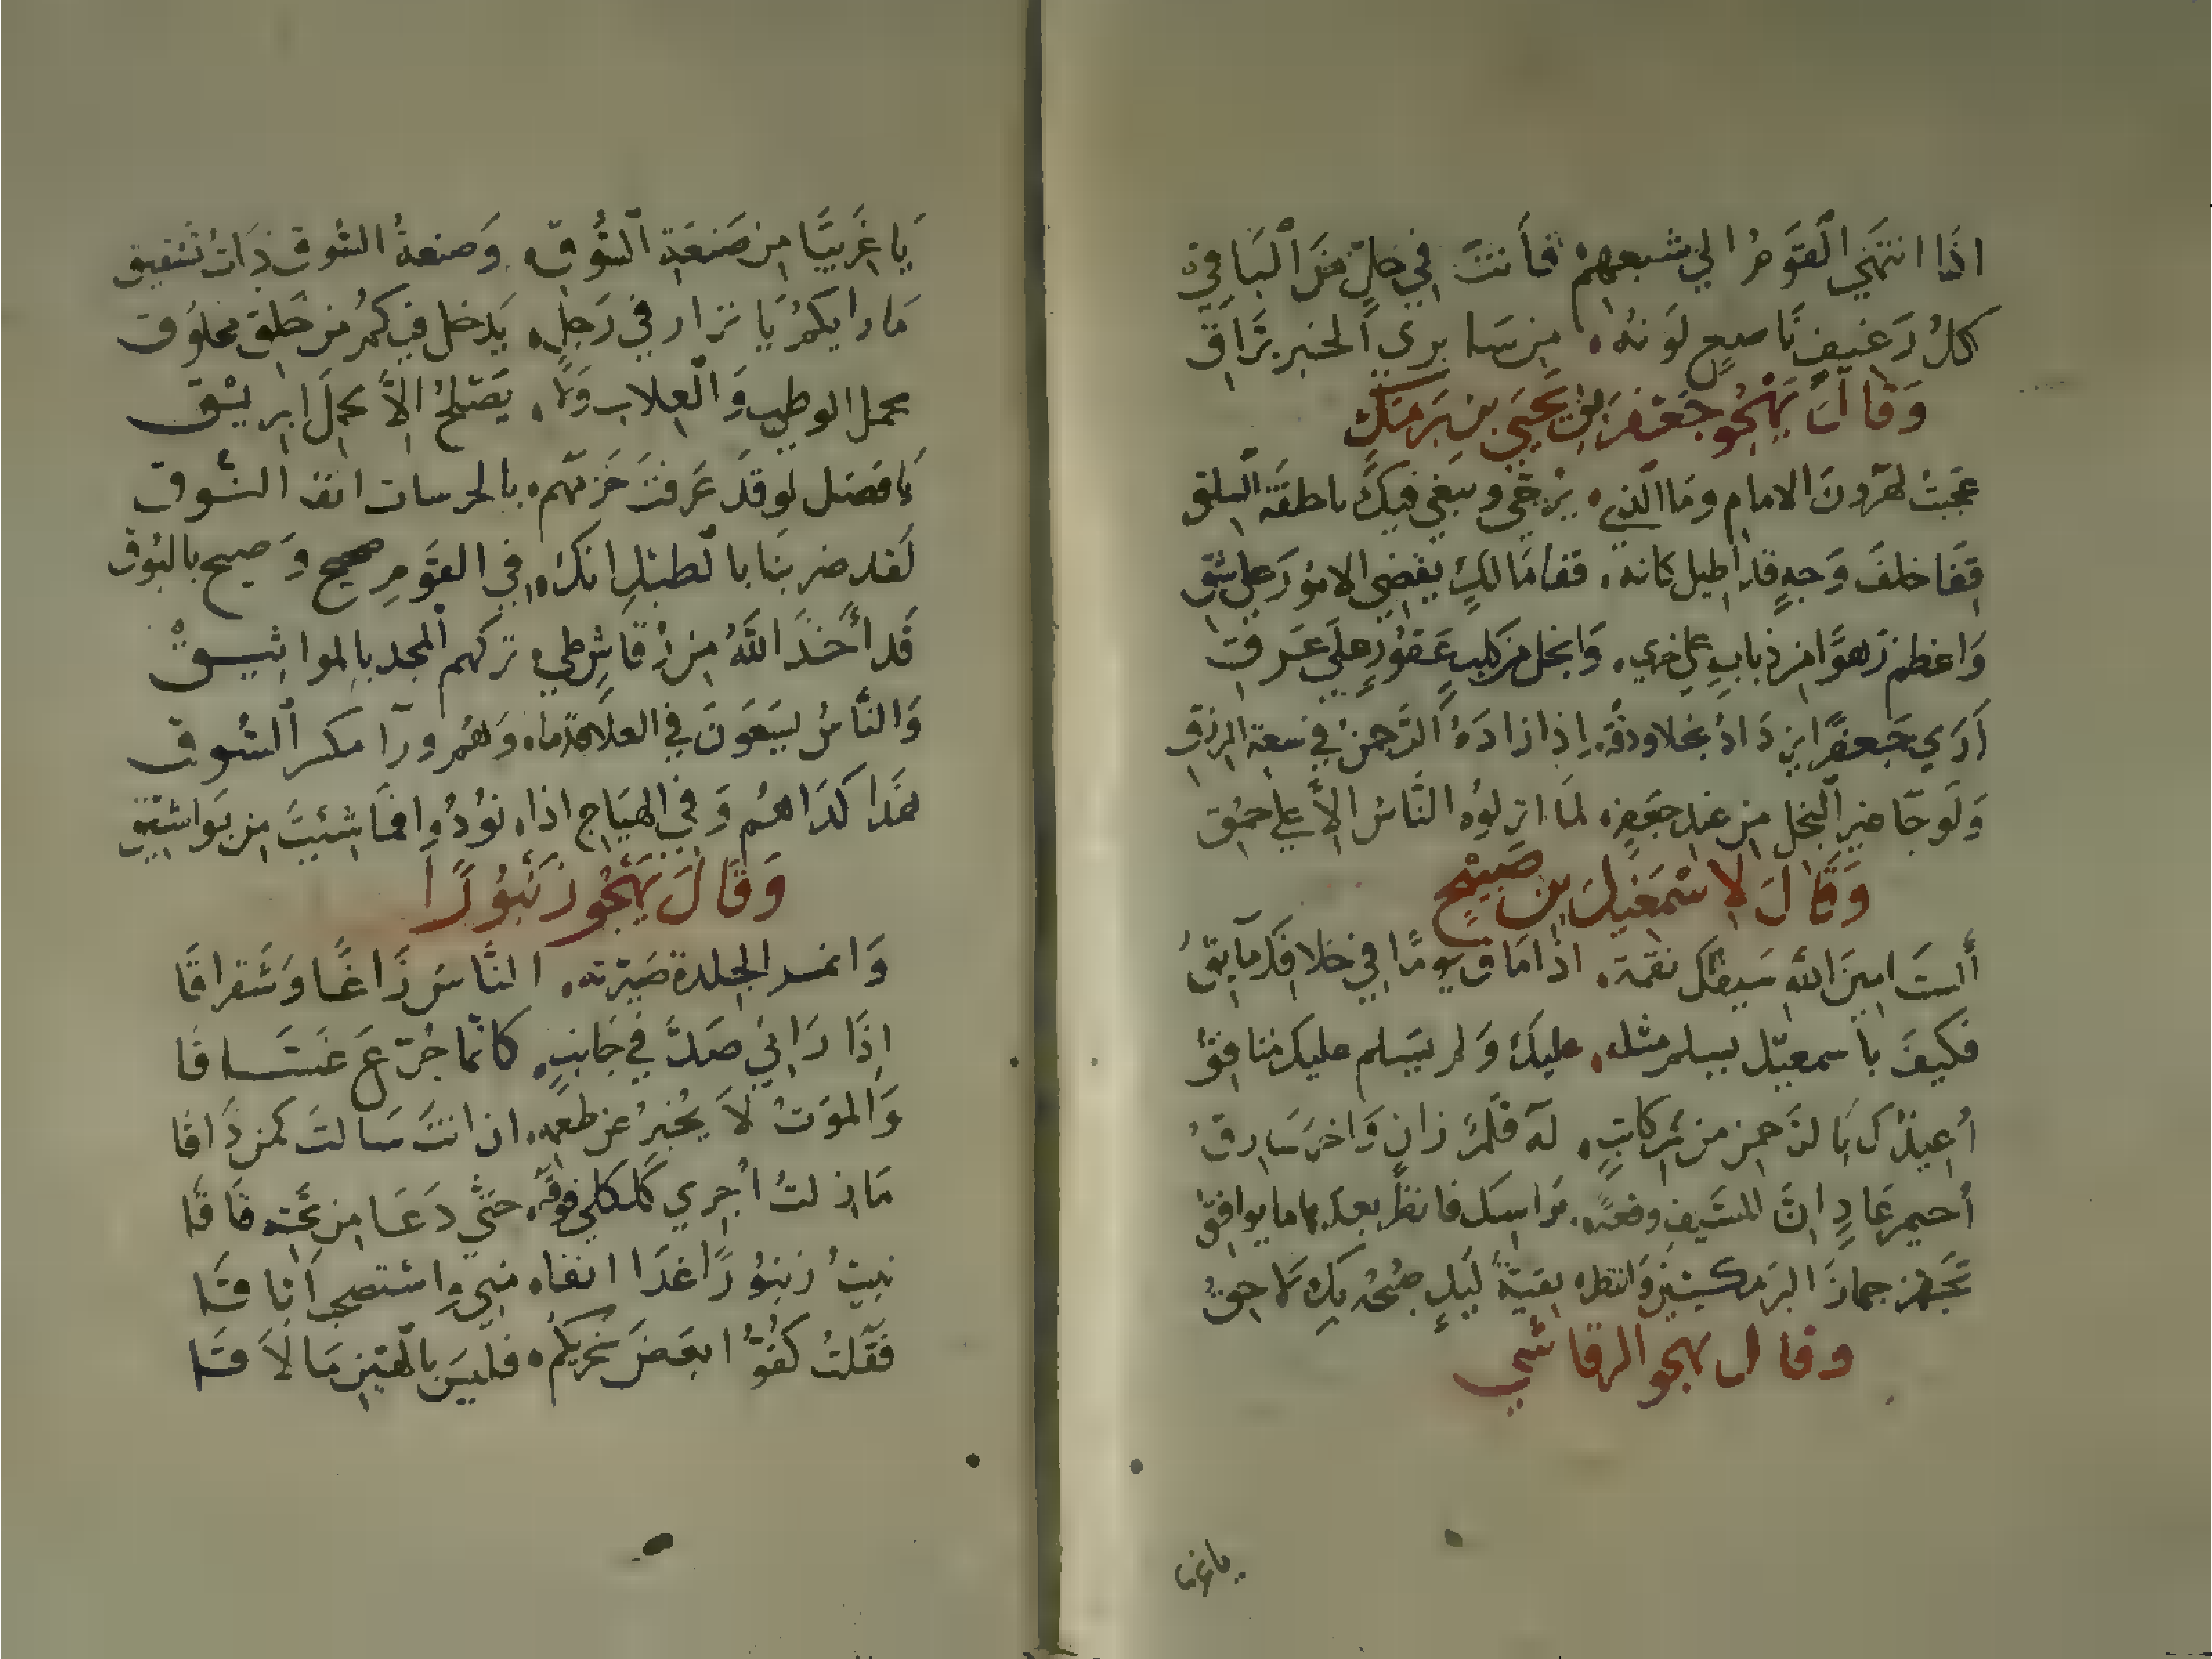 اذَا انتهَي القَومُ الي شبعهم فأنتَ في حلٍ منَ البَاقي
كلُ رَغيفٍ نَاصعٍ لَونُه من سَابري الخبز بَرَاقِ
وَقَالَ يَهْجُو جَعْفَرَ بْنَ يَحْيَى بنِ بَرمَكٍ
عَجبتُ لهرونَ الامام ومَا الذي يُرَجّي ويبغي فيكَ ياخلقَة السلق
قفَا خلفَ وَجهٍ قد اطيل كانه قفا مَالكٍ يقضي الامورَ علي بثق
وَاعظم زَهوًا من ذبابٍ علي خري وَابخل من كلبٍ عَقورٍ علي عَرق
أرَي جَعفرًا يزدَادُ بخلا ودقةً اذا زادَهُ الرَّحمنُ في سَعة الرزق
وَلَو جَا غير البخل من عند جعفر لمَا انزلوه النَّاسُ الاَّ علي حمق
وَقَالَ لاِسْمَعِيلَ بنِ صَبيْحٍ
ألستَ امينَ الله سَيفكَ نقمة اذَا مَاق يومًا في خلافكَ مَايقُ
فكيفَ باسمعيل يسلم مثله عليكَ وَلم يَسلم عليك منافقُ
أعيذك بالرَّحمن من شر كاتبٍ له قلمٌ زانٍ وَاخر سَارقُ
أحيمر عَادٍ انَّ للسَيف وقعةً براسك فانظر بعدها ما يوافقُ
تجهز جهازَ البرمكيين وَانتظر بقيَّة لَيلٍ صُبحُه بكَ لاحقُ
وقال يهجو الرقاشي
ياغريبا
يَا غَريبًا من صَنعَةِ السُّوقِ وَصنعةُ السُّوق ذَاتُ تشقيق
مَا رايكمُ يَا نزار في رَجلٍ يَدخل فيكمُ من خَلق مخلوق
يحمل الوطبَ وَالعلاب وَلا يَصلحُ الاَّ لحملَ ابريق
يَا فضل لو قَد عَرفتَ حَربَهم بالحرسات انف السُّوق
لقد ضربنَا بالطبل انكَ في القَوم صحيح وَصيح بالبُوق
قَد أخذَ اللهُ من رُقاشٍ علي تركهم المجد بالمواثيق
وَالنَّاسُ يَسعَونَ في العلا قدما وَهُم وراَ مكسر السُوق
هَذا كذَا هُم وَفي الهيَاج اذا نُودُوا فَما شئيتَ من بَواشيقِ
وَقَالَ يَهْجُو زَنْبُورًا
وَانمر الجلدة صَيّرته النَّاسَ زَاغًا وَشَقراقَا
اذَا رَاني صَدَّ في جَانبٍ كانّما جُرّعَ غَسَّاقَا
وَالمَوتُ لاَ يُخبرُ عن طعمه ان انتَ سَالتَ كمن ذَاقَا
مَازلتُ اُجري كَلكلي فوقَه حَتَّي دَعَا من تحته قَاقَا
نبيتُ زنبورًا غدَا انفا مني واستصحبَ آنا قَا
فقلتُ كفُّوا بعضَ تحريكم فليسَ بالهين مَا لاَقَا